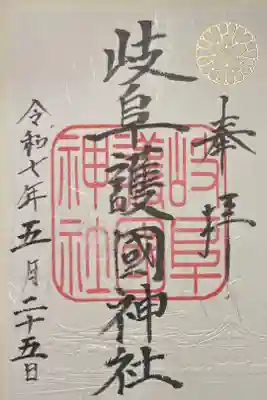 奉拝
岐阜護國神社
岐阜護國神社
令和七年五月二十五日